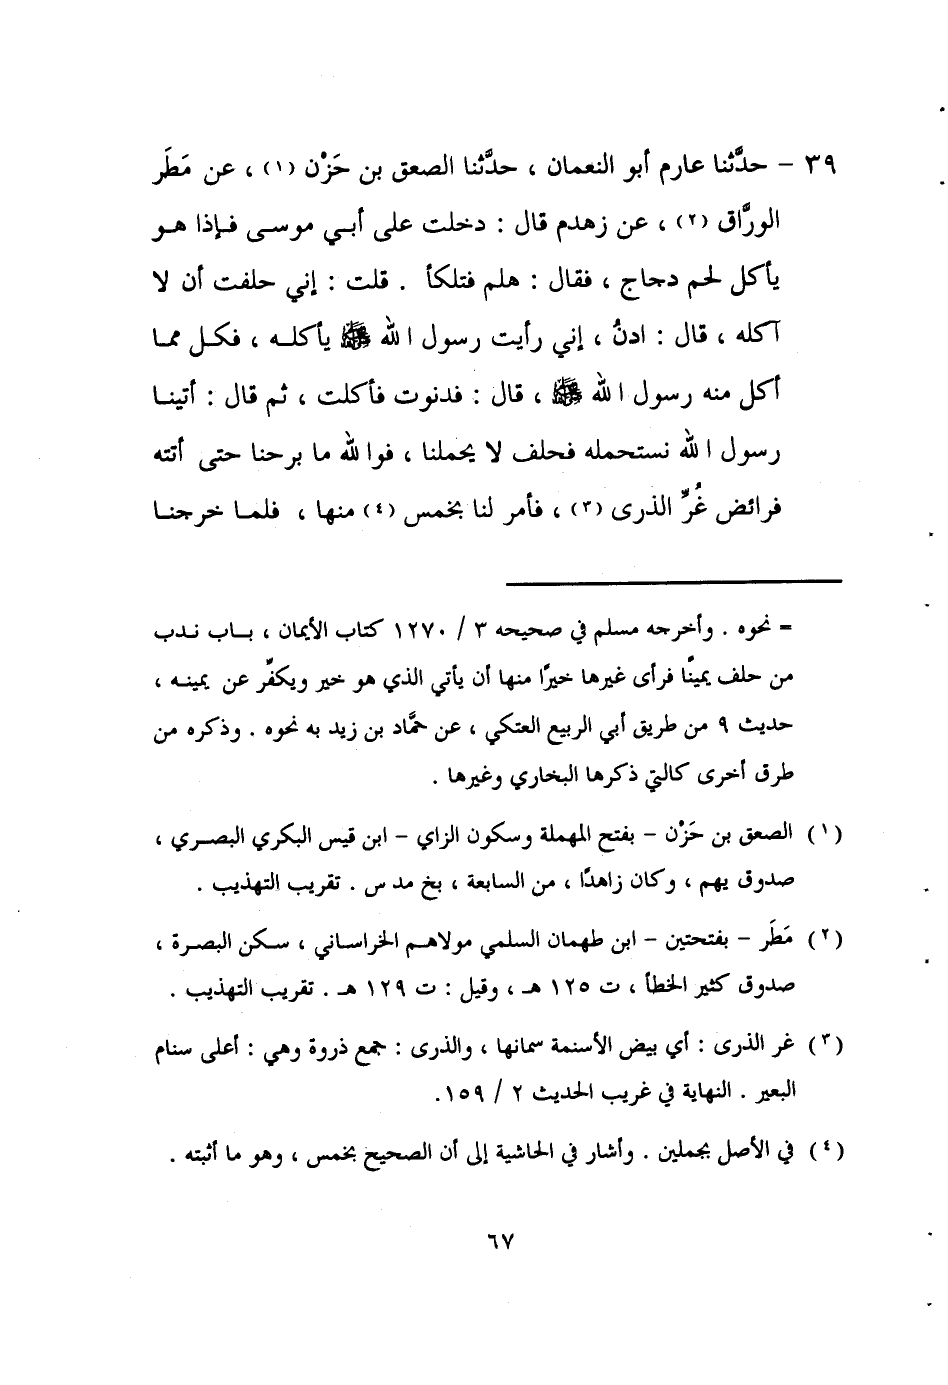 ٣٩ – حدَّثنا عارم أبو النعمان ، حدَّثنا الصعق بن حَزْن (١) ، عن مَطَر
الورَّاق (٢) ، عن زهدم قال : دخلت على أبي موسى فإذا هو
يأكل لحم دجاج ، فقال : هلم فتلكأ . قلت : إني حلفت أن لا
آكله ، قال : ادنُ ، إني رأيت رسول الله ﷺ يأكله ، فكل مما
أكل منه رسول الله ﷺ ، قال : فدنوت فأكلت ، ثم قال : أتينا
رسول الله نستحمله فحلف لا يحملنا ، فوالله ما برحنا حتى أتته
فرائض غُرِّ الذرى (٣) ، فأمر لنا بخمس (٤) منها ، فلما خرجنا
= نحوه . وأخرجه مسلم في صحيحه ٣ / ١٢٧٠ كتاب الأيمان ، باب ندب
من حلف يمينًا فرأى غيرها خيرًا منها أن يأتي الذي هو خير ويكفِّر عن يمينه ،
حديث ٩ من طريق أبي الربيع العتكي ، عن حمَّاد بن زيد به نحوه . وذكره من
طرق أخرى كالتي ذكرها البخاري وغيرها .
(١) الصعق بن حَزْن – بفتح المهملة وسكون الزاي – ابن قيس البكري البصري ،
صدوق يهم ، وكان زاهدًا ، من السابعة ، بخ مد س . تقريب التهذيب .
(٢) مَطَر – بفتحتين – ابن طهمان السلمي مولاهم الخراساني ، سكن البصرة ،
صدوق كثير الخطأ ، ت ١٢٥ هـ ، وقيل : ت ١٢٩ هـ . تقريب التهذيب .
(٣) غر الذرى : أي بيض الأسنمة سمانها ، والذرى : جمع ذروة وهي : أعلى سنام
البعير . النهاية في غريب الحديث ٢ / ١٥٩.
(٤) في الأصل بجملين . وأشار في الحاشية إلى أن الصحيح بخمس ، وهو ما أثبته .
٦٧